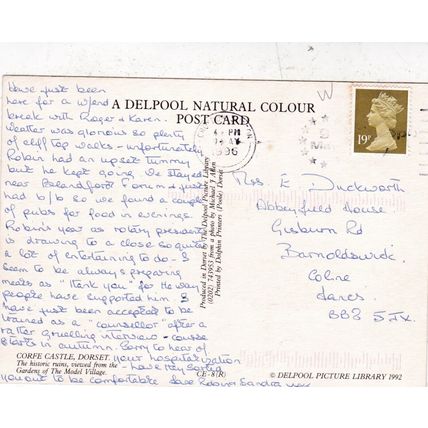 Have just been
here for a w/end
break with Roger & Karen.
Weather was glorious so plenty
of cliff top walks - unfortunately
Robin had an upset tummy
but he kept going. We stayed
near Blandford Forum & just
had b/b so we found a couple
of pubs for food in evenings.
Robin's year as rotary president
is drawing to a close so quite
a lot of entertaining to do - I
seem to be always preparing
meals as "thank you" for the way
people have supported him. I
have just been accepted to be
trained as a "counsellor" after a
rather gruelling interview - course
starts in autumn. Sorry to hear of
your hospitalization
- have they
you out to be comfortable love Robin Sandra
A DELPOOL NATURAL COLOUR
POST CARD
PM
1996
19P
Produced in Dorset by The Delpool Picture Library
(0202) 743953 from a photo by Michael J Allen
Printed by Dolphin Printers (Poole) Dorset
Mrs E. Duckworth
Abbeyfield House
Gisburn Rd
Barnoldswick
Colne
Lancs.
BB8 5JX.
CORFE CASTLE, DORSET.
The historic ruins, viewed from the
Gardens of The Model Village.
CE-8(R)
© DELPOOL PICTURE LIBRARY 1992